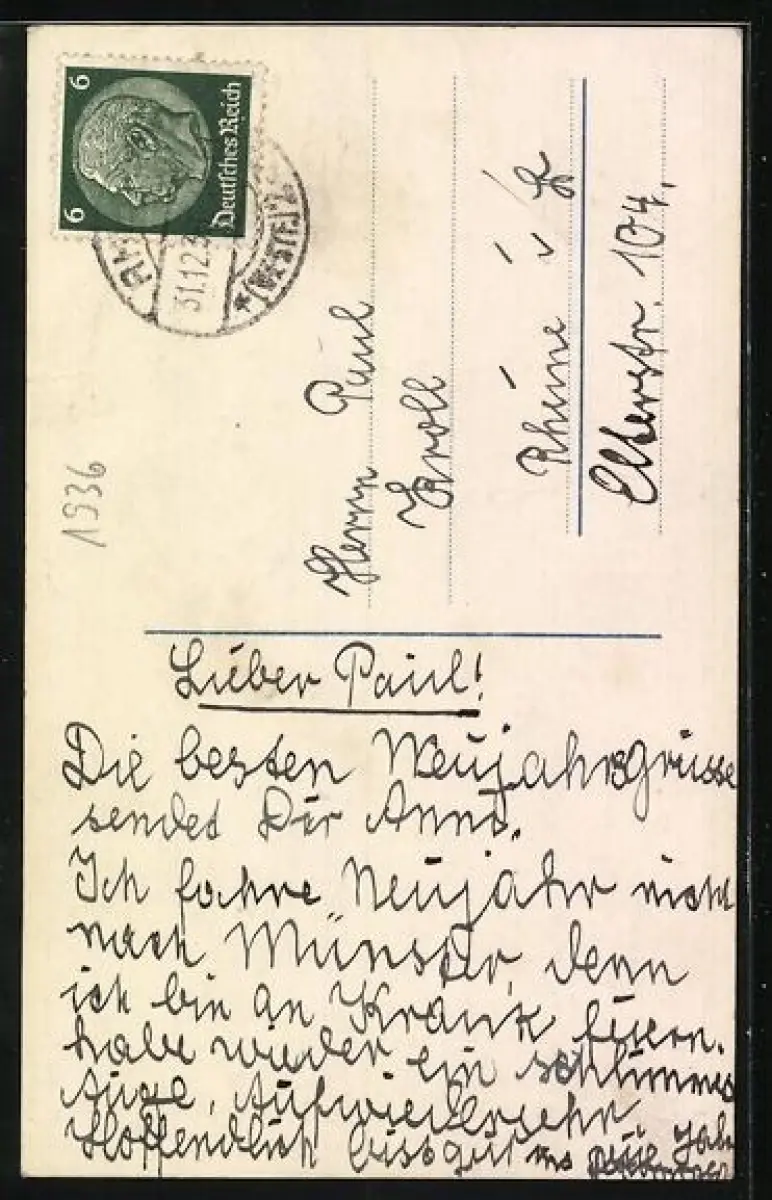 6 6
Deutsches Reich
31.12.3
(WESTF.) 2
1936
Herrn Paul
Kroll
Rheine i/W
Elterstr. 104.
Lieber Paul!
Die besten Neujahrsgrüsse
sendet Dir Anna.
Ich fahre Neujahr nicht
nach Münster, denn
ich bin an Krank feiern.
habe wieder ein schlimmes
Auge, Aufwiedersehn
Hoffendlich bist gut ins neue Jahr